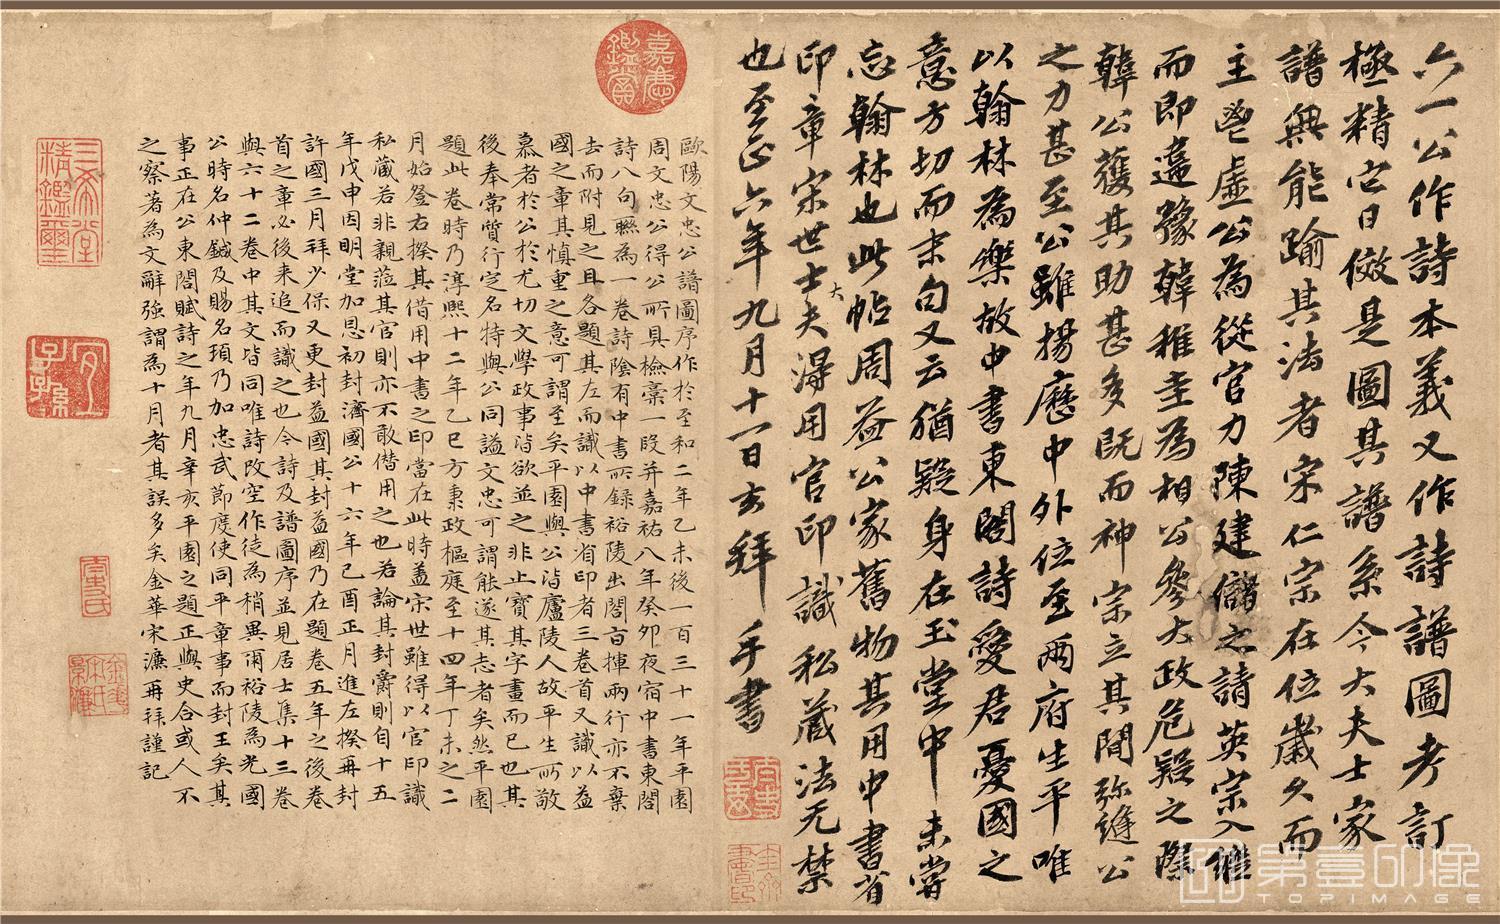 六一公作詩本義又作詩譜圖考訂
極精它日倣是圖其譜系今大夫士家
譜無能踰其法者宋仁宗在位歲久而
主鬯虛公為從官力陳建儲之請英宗入繼
而即違豫韓稚圭為相公參大政危疑之際
韓公獲其助甚多既而神宗立其間弥縫公
之力甚至公雖揚歷中外位至兩府生平唯
以翰林為樂故中書東閣詩愛君憂國之
意方切而末句又云猶疑身在玉堂中未嘗
忘翰林也此帖周益公家舊物其用中書省
印章宋世士大夫得用官印識私藏法无禁
也至正六年九月十一日玄拜手書
歐陽文忠公譜圖序作於至和二年乙未後一百三十一年平園
周文忠公得公所具檢藁一段并嘉祐八年癸卯夜宿中書東閣
詩八句聯為一卷詩陰有中書所錄裕陵出閤旨揮兩行亦不棄
去而附見之且各題其左而識以中書省印者三卷首又識以益
國之章其慎重之意可謂至矣平園與公皆廬陵人故平生所敬
慕者於公於尤切文學政事皆欲並之非止寶其字畫而已也其
後奉常質行定名特與公同謚文忠可謂能遂其志者矣然平園
題此卷時乃淳熙十二年乙巳方秉政樞庭至十四年丁未之二
月始登右揆其借用中書之印當在此時蓋宋世雖得以官印識
私藏若非親蒞其官則亦不敢僭用之也若論其封爵則自十五
年戊申因明堂加恩初封濟國公十六年己酉正月進左揆再封
許國三月拜少保又更封益國其封益國乃在題卷五年之後卷
首之章必後來追而識之也今詩及譜圖序並見居士集十三卷
與六十二卷中其文皆同唯詩改空作徒為稍異爾裕陵為光國
公時名仲鍼及賜名頊乃加忠武節度使同平章事而封王矣其
事正在公東閤賦詩之年九月辛亥平園之題正與史合或人不
之察著為文辭強謂為十月者其誤多矣金華宋濂再拜謹記
嘉慶鑑賞
三希堂精鑑璽
宜子孫
太史氏
金華宋氏景濂
第壹印像
TOPIMAGE